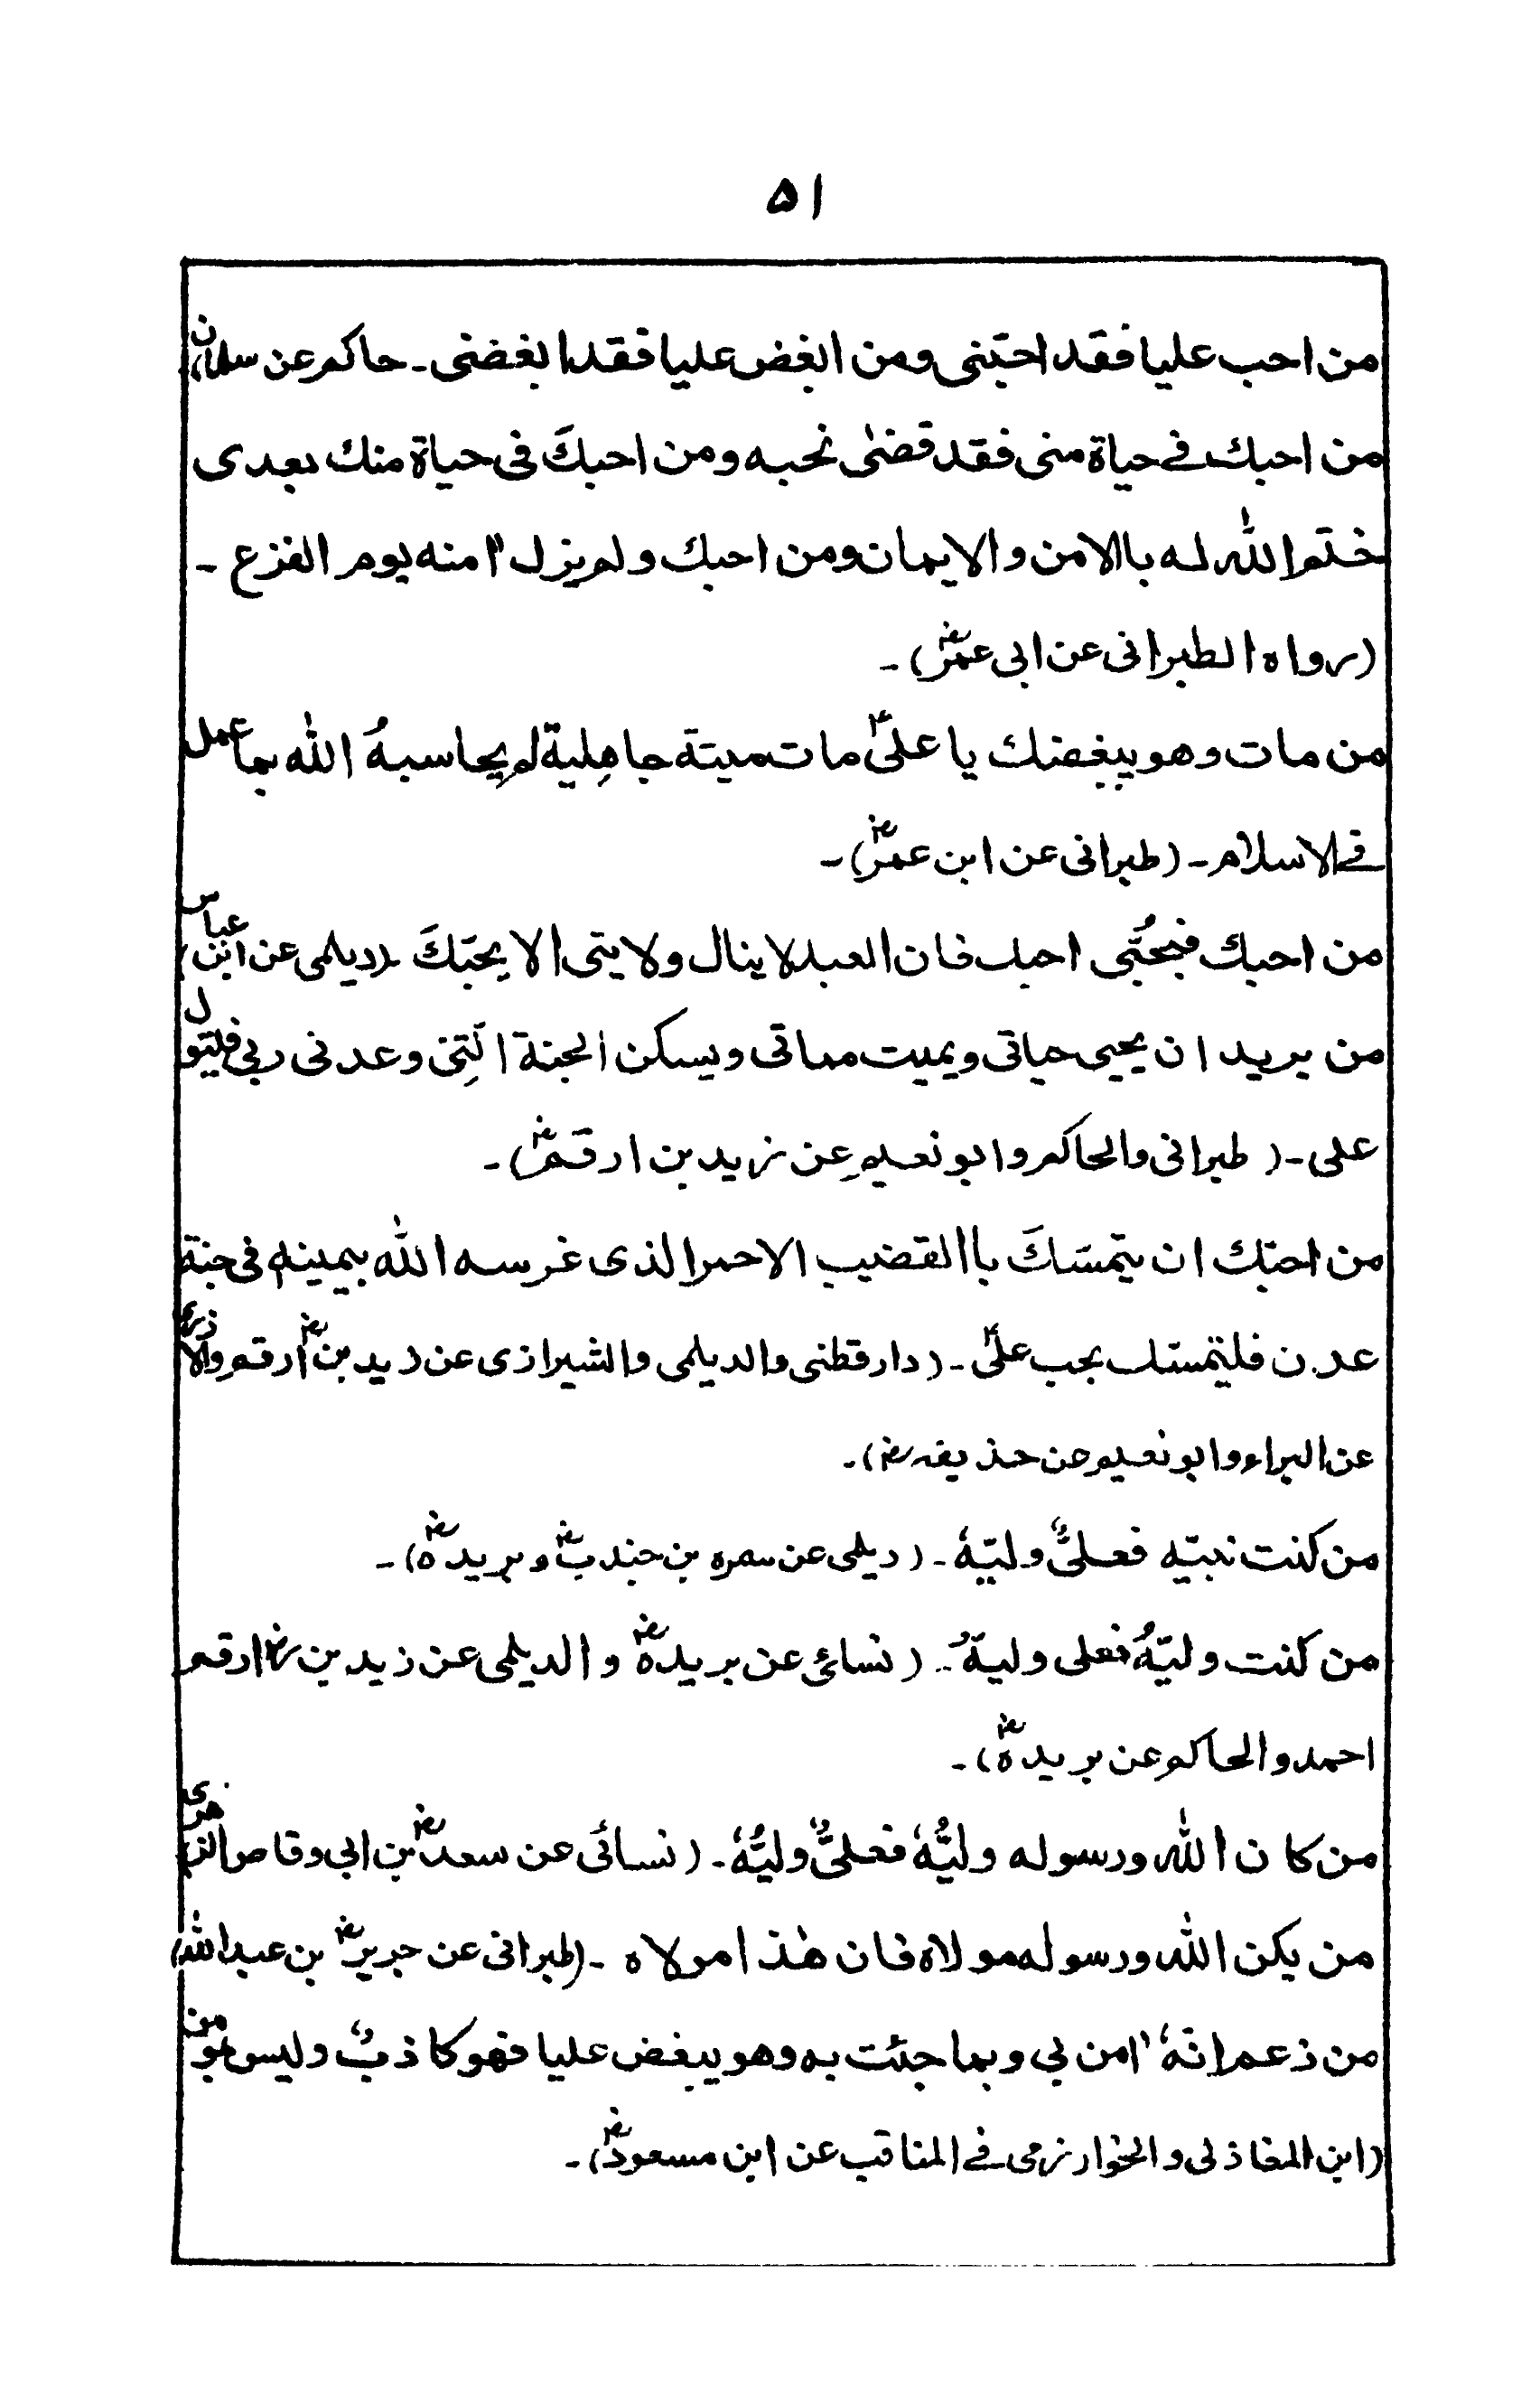 ۵۱
من احب علیا فقد احبّنی ومن ابغض علیا فقد ابغضنی۔ حاکم عن سلمان)
من احبك فی حیاة منی فقد قضیٰ نحبه ومن احبكَ فی حیاة منك بعدی
ختم اللّٰہ له بالامن والایمان ومن احبك ولم یزل اٰمنه یوم الفزع ۔
(رواہ الطبرانی عن ابی عمرؓ)۔
من مات وهو یبغضك یا علیؑ مات میتة جاهِلیة لم یحاسبهُ اللّٰہ بما عمل
فی الاسلام۔ (طبرانی عن ابن عمرؓ)۔
من احبك فبحُبّی احبك فان العبد لا ینال ولایتی الا بحبّكَ (دیلمی عن ابن عباس)
من یرید ان یحیی حیاتی ویمیت مماتی ویسکن الجنة الّتِی وعدنی ربی فلیتول
علی۔ (طبرانی والحاکم وابو نعیم عن زید بن ارقمؓ)۔
من احبّك ان یتمسّكَ باالقضیب الاحمر الذی غرسه اللّٰہ بیمینهٖ فی جنة
عدن فلیتمسّك بحب علیؑ۔ (دارقطنی والدیلمی والشیرازی عن زید بنؓ ارقم و
عن البراء وابو نعیم عن حذیفهؓ)۔
من کنت نبیّه فعلیٌّ ولیّهٗ۔ (دیلمی عن سمرہ بن جندبؓ و بریدہؓ)۔
من کنت ولیّهُ فعلی ولیّهُ۔ (نسائی عن بریدہؓ و الدیلمی عن زید بنؓ ارقم
احمد والحاکم عن بریدہؓ)۔
من کان اللّٰہ ورسوله ولیُّهٗ فعلیٌّ ولیُّهٗ۔ (نسائی عن سعدؓ بن ابی وقاص الزهری
من یکن اللّٰہ ورسوله مولاہ فان هٰذا مولاہ ۔ (طبرانی عن جریرؓ بن عبداللّٰہ)
من زعم انّهٗ اٰمن بی وبما جئت به وهو یبغض علیا فهو کاذبٌ ولیس بمومن
(ابن المغاذلی و الخوارزمی فی المناقب عن ابن مسعودؓ)۔